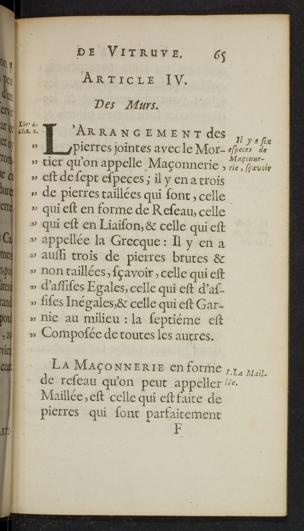 DE VITRUVE. 65
ARTICLE IV.
Des Murs.
L'ARRANGEMENT des
„ pierres jointes avec le Mor-
„ tier qu'on appelle Maçonnerie,
„ est de sept especes; il y en a trois
„ de pierres taillées qui sont, celle
„ qui est en forme de Reseau, celle
„ qui est en Liaison, & celle qui est
„ appellée la Grecque: Il y en a
„ aussi trois de pierres brutes &
„ non taillées, sçavoir, celle qui est
„ d'assises Egales, celle qui est d'as-
„ sises Inégales, & celle qui est Gar-
„ nie au milieu: la septiéme est
„ Composée de toutes les autres.
Il y a six
especes de
Maçonne-
rie, sçavoir
LA MAÇONNERIE en forme
de reseau qu'on peut appeller
Maillée, est celle qui est faite de
pierres qui sont parfaitement
1. La Mail-
lée.
F